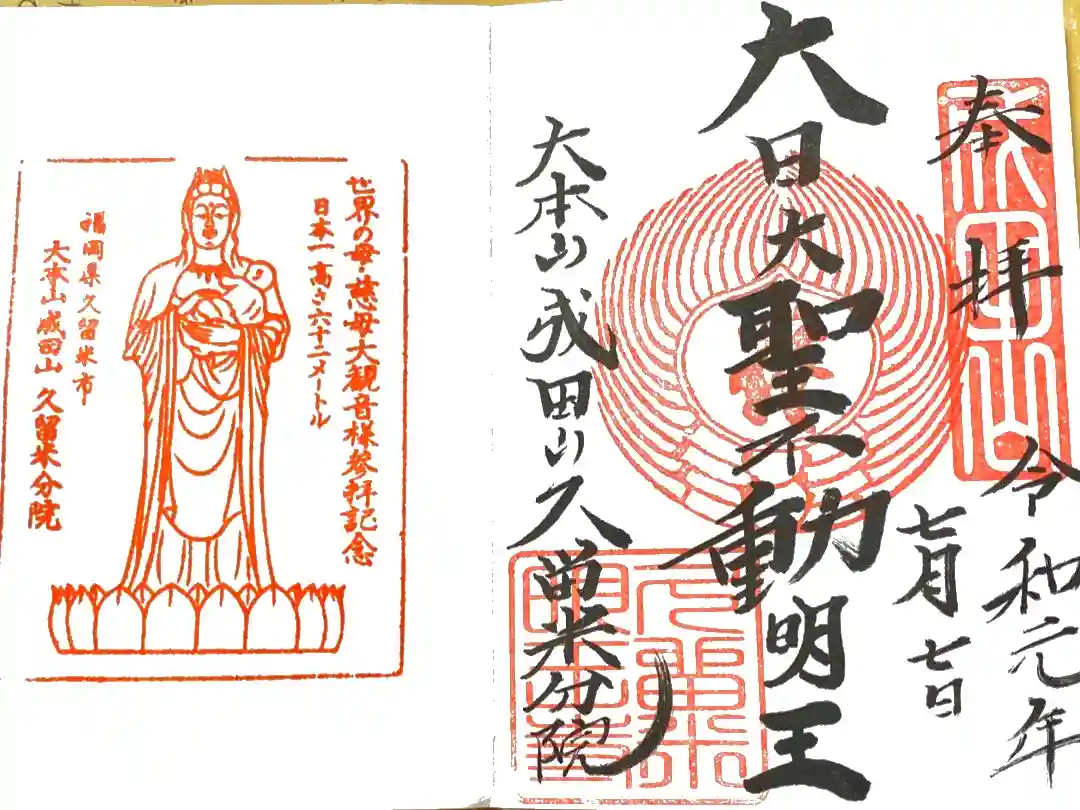 奉拝
令和元年
七月七日
大日大聖不動明王
大本山成田山久留米分院
成田山
世界の母・慈母大観音様参拝記念
日本一高さ六十二メートル
福岡県久留米市
大本山成田山久留米分院